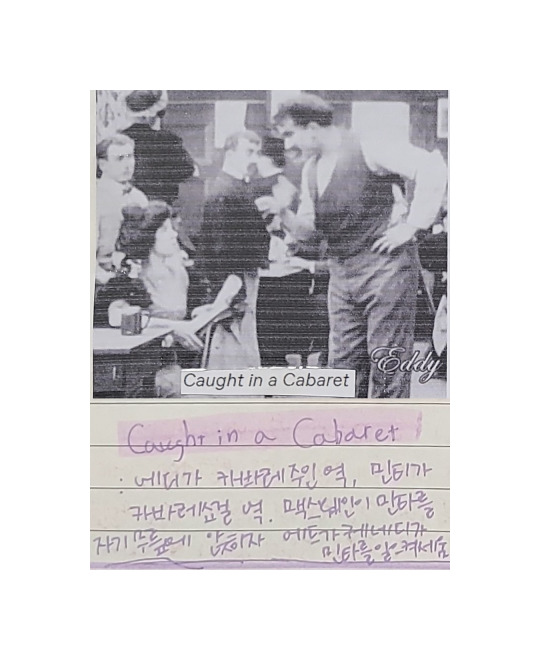 Eddy
Caught in a Cabaret
Caught in a Cabaret
: 에디가 카바레주인역, 민타가
카바레쇼걸 역. 맥스웨인이 민타를
자기 무릎에 앉히자 에드가케네디가
민타를일으켜세움